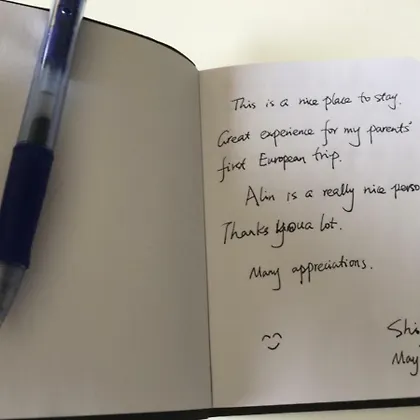 This is a nice place to stay.
Great experience for my parents'
first European trip.
Alin is a really nice perso
Thanks a lot.
Many appreciations.
Shi
May